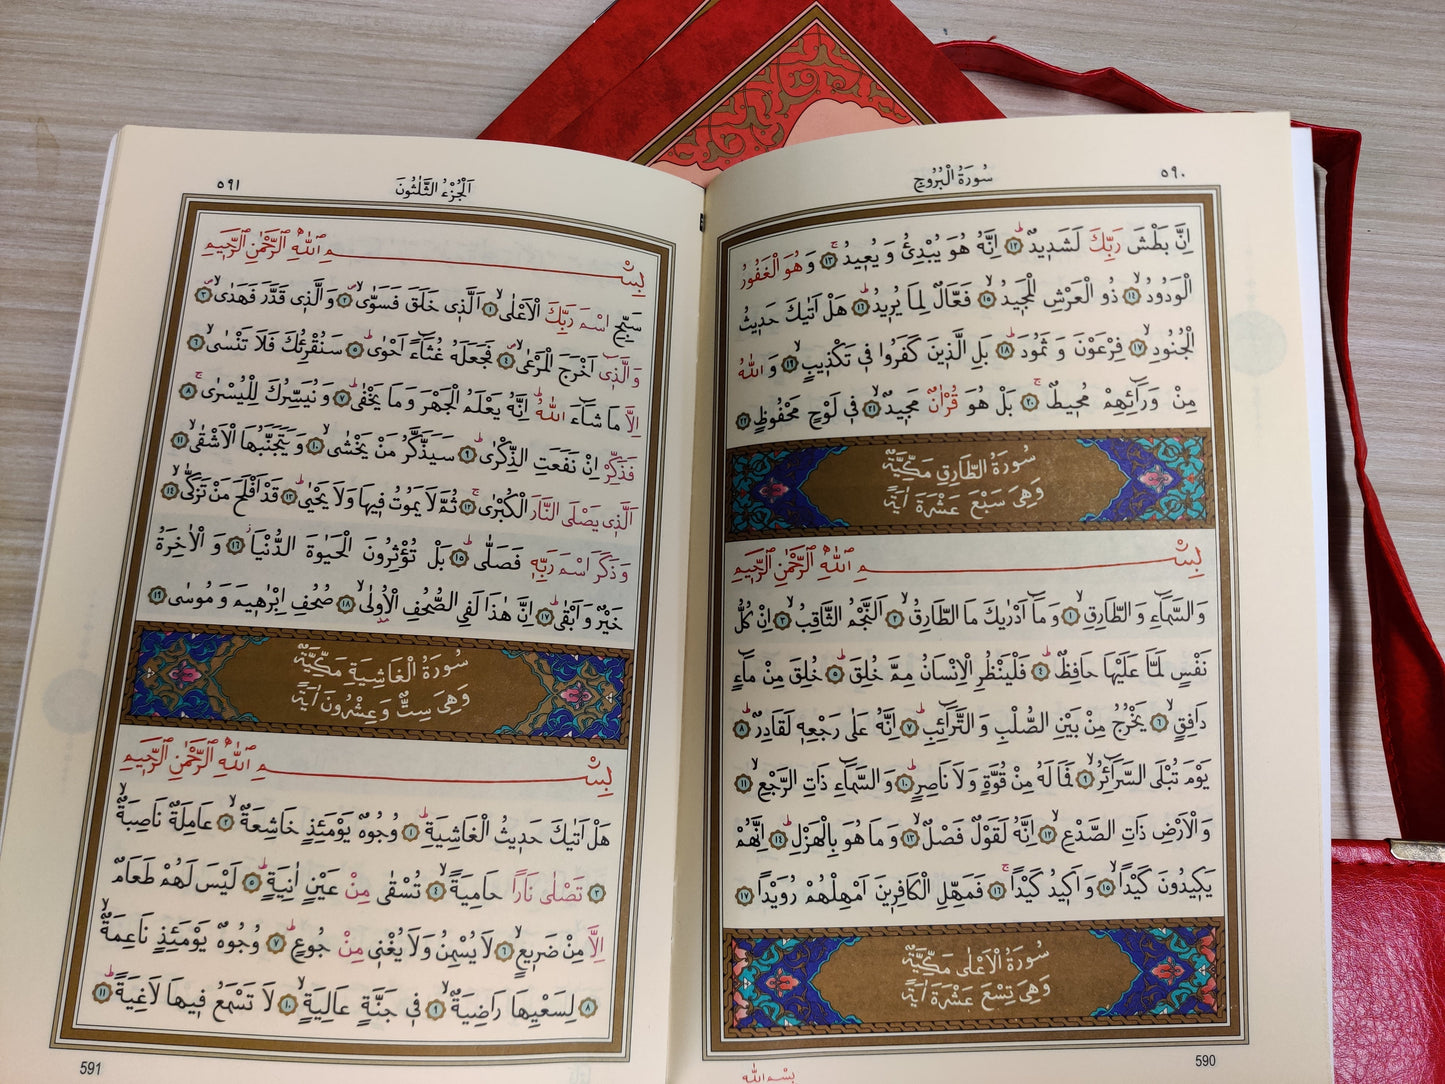 ٥٩٠
سُورَةُ الْبُرُوجِ
اِنَّ بَطْشَ رَبِّكَ لَشَدٖيدٌؕ ﴿١٢﴾ اِنَّهُ هُوَ يُبْدِئُ وَ يُعٖيدُۚ ﴿١٣﴾ وَهُوَ الْغَفُورُ
الْوَدُودُۙ ﴿١٤﴾ ذُو الْعَرْشِ الْمَجٖيدُۙ ﴿١٥﴾ فَعَّالٌ لِمَا يُرٖيدُؕ ﴿١٦﴾ هَلْ اَتٰيكَ حَدٖيثُ
الْجُنُودِۙ ﴿١٧﴾ فِرْعَوْنَ وَ ثَمُودَؕ ﴿١٨﴾ بَلِ الَّذٖينَ كَفَرُوا فٖى تَكْذٖيبٍۙ ﴿١٩﴾ وَ اللّٰهُ
مِنْ وَرَٓائِهِمْ مُحٖيطٌۚ ﴿٢٠﴾ بَلْ هُوَ قُرْاٰنٌ مَجٖيدٌۙ ﴿٢١﴾ فٖى لَوْحٍ مَحْفُوظٍ ﴿٢٢﴾
سُورَةُ الطَّارِقِ مَكِّيَّةٌ
وَهِىَ سَبْعَ عَشْرَةَ اٰيَةً
بِسْمِ اللّٰهِ الرَّحْمٰنِ الرَّحٖيمِ
وَالسَّمَٓاءِ وَ الطَّارِقِۙ ﴿١﴾ وَمَٓا اَدْرٰيكَ مَا الطَّارِقُۙ ﴿٢﴾ اَلنَّجْمُ الثَّاقِبُۙ ﴿٣﴾ اِنْ كُلُّ
نَفْسٍ لَمَّا عَلَيْهَا حَافِظٌؕ ﴿٤﴾ فَلْيَنْظُرِ الْاِنْسَانُ مِمَّ خُلِقَؕ ﴿٥﴾ خُلِقَ مِنْ مَٓاءٍ
دَافِقٍۙ ﴿٦﴾ يَخْرُجُ مِنْ بَيْنِ الصُّلْبِ وَ التَّرَٓائِبِؕ ﴿٧﴾ اِنَّهُ عَلٰى رَجْعِهٖ لَقَادِرٌؕ ﴿٨﴾
يَوْمَ تُبْلَى السَّرَٓائِرُۙ ﴿٩﴾ فَمَا لَهُ مِنْ قُوَّةٍ وَ لَا نَاصِرٍؕ ﴿١٠﴾ وَالسَّمَٓاءِ ذَاتِ الرَّجْعِۙ ﴿١١﴾
وَ الْاَرْضِ ذَاتِ الصَّدْعِۙ ﴿١٢﴾ اِنَّهُ لَقَوْلٌ فَصْلٌۙ ﴿١٣﴾ وَ مَا هُوَ بِالْهَزْلِؕ ﴿١٤﴾ اِنَّهُمْ
يَكٖيدُونَ كَيْدًاۙ ﴿١٥﴾ وَ اَكٖيدُ كَيْدًاۚ ﴿١٦﴾ فَمَهِّلِ الْكَافِرٖينَ اَمْهِلْهُمْ رُوَيْدًا ﴿١٧﴾
سُورَةُ الْاَعْلٰى مَكِّيَّةٌ
وَهِىَ تِسْعَ عَشْرَةَ اٰيَةً
590
بِسْمِ اللّٰهِ
٥٩١
اَلْجُزْءُ الثَّلٰثُونَ
بِسْمِ اللّٰهِ الرَّحْمٰنِ الرَّحٖيمِ
سَبِّحِ اسْمَ رَبِّكَ الْاَعْلٰىۙ ﴿١﴾ اَلَّذٖى خَلَقَ فَسَوّٰىۙ ﴿٢﴾ وَالَّذٖى قَدَّرَ فَهَدٰىۙ ﴿٣﴾
وَالَّذٖٓى اَخْرَجَ الْمَرْعٰىۙ ﴿٤﴾ فَجَعَلَهُ غُثَٓاءً اَحْوٰىؕ ﴿٥﴾ سَنُقْرِئُكَ فَلَا تَنْسٰىۙ ﴿٦﴾
اِلَّا مَا شَٓاءَ اللّٰهُؕ اِنَّهُ يَعْلَمُ الْجَهْرَ وَمَا يَخْفٰىؕ ﴿٧﴾ وَ نُيَسِّرُكَ لِلْيُسْرٰىۚ ﴿٨﴾
فَذَكِّرْ اِنْ نَفَعَتِ الذِّكْرٰىؕ ﴿٩﴾ سَيَذَّكَّرُ مَنْ يَخْشٰىۙ ﴿١٠﴾ وَ يَتَجَنَّبُهَا الْاَشْقٰىۙ ﴿١١﴾
اَلَّذٖى يَصْلَى النَّارَ الْكُبْرٰىۚ ﴿١٢﴾ ثُمَّ لَا يَمُوتُ فٖيهَا وَلَا يَحْيٰىؕ ﴿١٣﴾ قَدْ اَفْلَحَ مَنْ تَزَكّٰىۙ ﴿١٤﴾
وَ ذَكَرَ اسْمَ رَبِّهٖ فَصَلّٰىؕ ﴿١٥﴾ بَلْ تُؤْثِرُونَ الْحَيٰوةَ الدُّنْيَاؗ ﴿١٦﴾ وَ الْاٰخِرَةُ
خَيْرٌ وَ اَبْقٰىؕ ﴿١٧﴾ اِنَّ هٰذَا لَفِى الصُّحُفِ الْاُولٰىۙ ﴿١٨﴾ صُحُفِ اِبْرٰهٖيمَ وَ مُوسٰى ﴿١٩﴾
سُورَةُ الْغَاشِيَةِ مَكِّيَّةٌ
وَهِىَ سِتٌّ وَ عِشْرُونَ اٰيَةً
بِسْمِ اللّٰهِ الرَّحْمٰنِ الرَّحٖيمِ
هَلْ اَتٰيكَ حَدٖيثُ الْغَاشِيَةِؕ ﴿١﴾ وُجُوهٌ يَوْمَئِذٍ خَاشِعَةٌۙ ﴿٢﴾ عَامِلَةٌ نَاصِبَةٌۙ
﴿٣﴾ تَصْلٰى نَارًا حَامِيَةًۙ ﴿٤﴾ تُسْقٰى مِنْ عَيْنٍ اٰنِيَةٍؕ ﴿٥﴾ لَيْسَ لَهُمْ طَعَامٌ
اِلَّا مِنْ ضَرٖيعٍۙ ﴿٦﴾ لَا يُسْمِنُ وَلَا يُغْنٖى مِنْ جُوعٍؕ ﴿٧﴾ وُجُوهٌ يَوْمَئِذٍ نَاعِمَةٌۙ
﴿٨﴾ لِسَعْيِهَا رَاضِيَةٌۙ ﴿٩﴾ فٖى جَنَّةٍ عَالِيَةٍۙ ﴿١٠﴾ لَا تَسْمَعُ فٖيهَا لَاغِيَةًؕ ﴿١١﴾
591